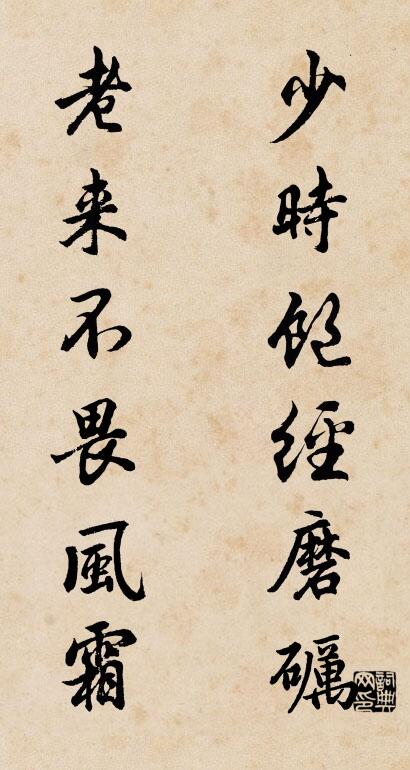 少時飽經磨礪
老来不畏風霜
詞典網印